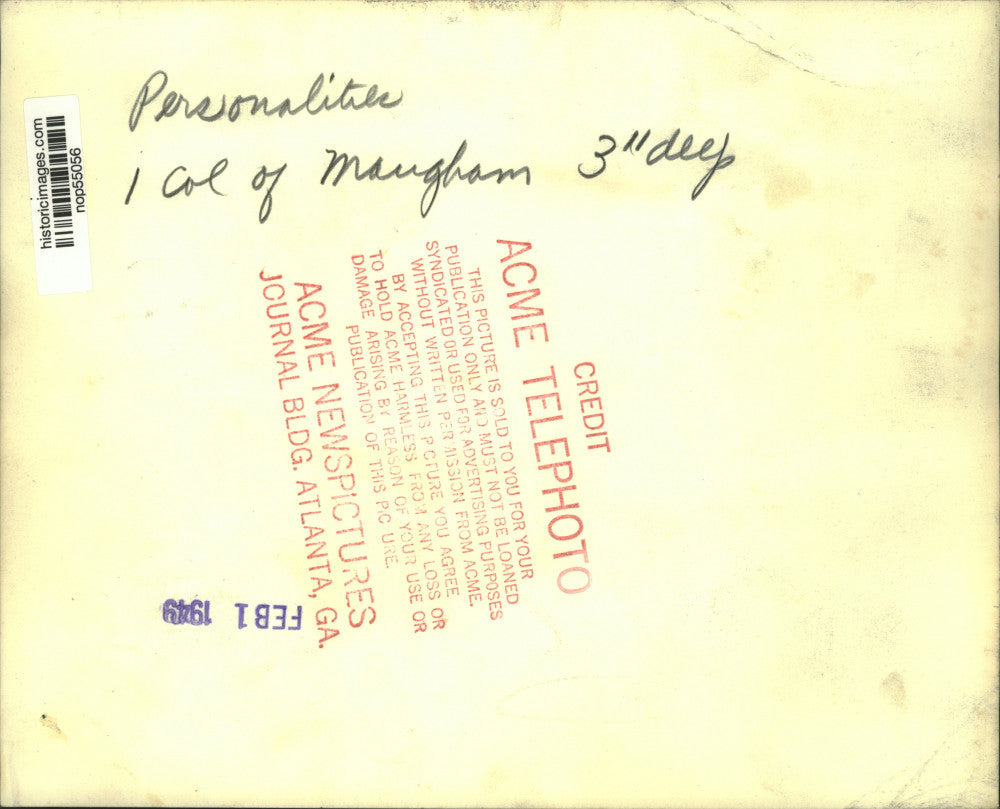 Personalities
1 Col of Maugham 3" deep
historicimages.com
nop55056
CREDIT
ACME TELEPHOTO
THIS PICTURE IS SOLD TO YOU FOR YOUR
PUBLICATION ONLY AND MUST NOT BE LOANED
SYNDICATED OR USED FOR ADVERTISING PURPOSES
WITHOUT WRITTEN PERMISSION FROM ACME.
BY ACCEPTING THIS PICTURE YOU AGREE
TO HOLD ACME HARMLESS FROM ANY LOSS OR
DAMAGE ARISING BY REASON OF YOUR USE OR
PUBLICATION OF THIS PICTURE.
ACME NEWSPICTURES
JOURNAL BLDG. ATLANTA, GA.
FEB 1 1949